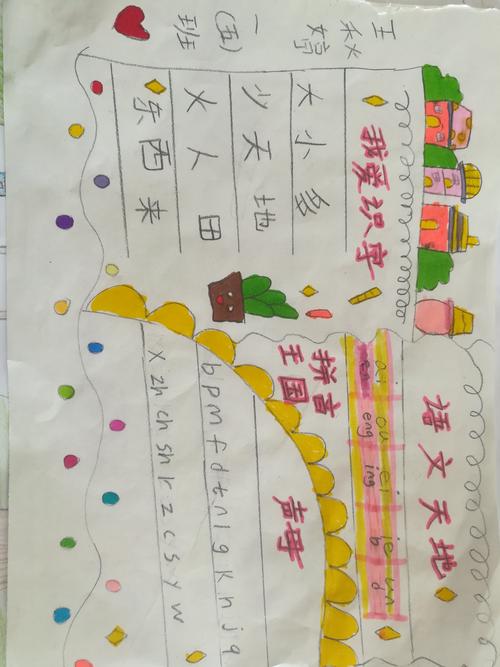 王秋婷
一(五)班
语文天地
我爱识字
大小多
少天地
火人田
东西来
ai ou ei ie un
en eng ing
拼音
王国
声母
b p m f d t n l g k h j q
x zh ch sh r z c s y w